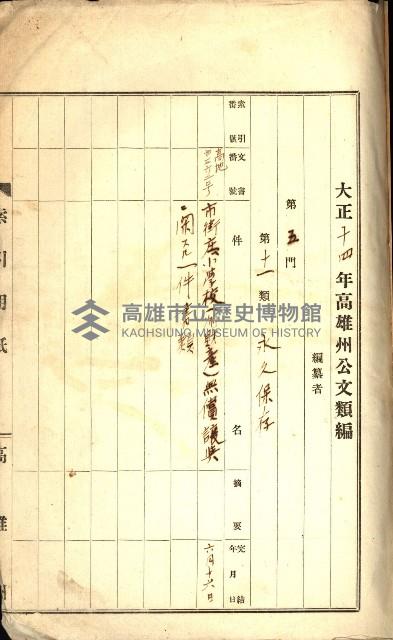 大正十四年高雄州公文類編
編纂者
第五門
第十一類
永久保存
索引番號
文書番號
件名
摘要
完結年月日
高地
市街庄小學校
無償讓與
ニ關スル一件書類
六月十六日
索引用紙
高雄州
高雄市立歷史博物館
KAOHSIUNG MUSEUM OF HISTORY